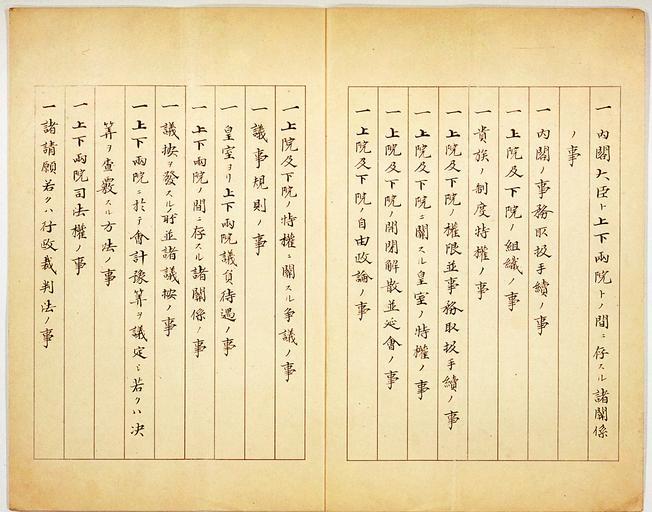 一内閣大臣ト上下兩院トノ間ニ存スル諸關係
ノ事
一内閣ノ事務取扱手續ノ事
一上院及下院ノ組織ノ事
一貴族ノ制度特權ノ事
一上院及下院ノ權限並事務取扱手續ノ事
一上院及下院ニ關スル皇室ノ特權ノ事
一上院及下院ノ開閉解散並延會ノ事
一上院及下院ノ自由政論ノ事
一上院及下院ノ特權ニ關スル爭議ノ事
一議事規則ノ事
一皇室ヨリ上下兩院議員待遇ノ事
一上下兩院ノ間ニ存スル諸關係ノ事
一議按ヲ發スル所並諸議按ノ事
一上下兩院ニ於テ會計豫算ヲ議定シ若クハ决
算ヲ查覈スル方法ノ事
一上下兩院司法權ノ事
一諸請願若クハ行政裁判法ノ事